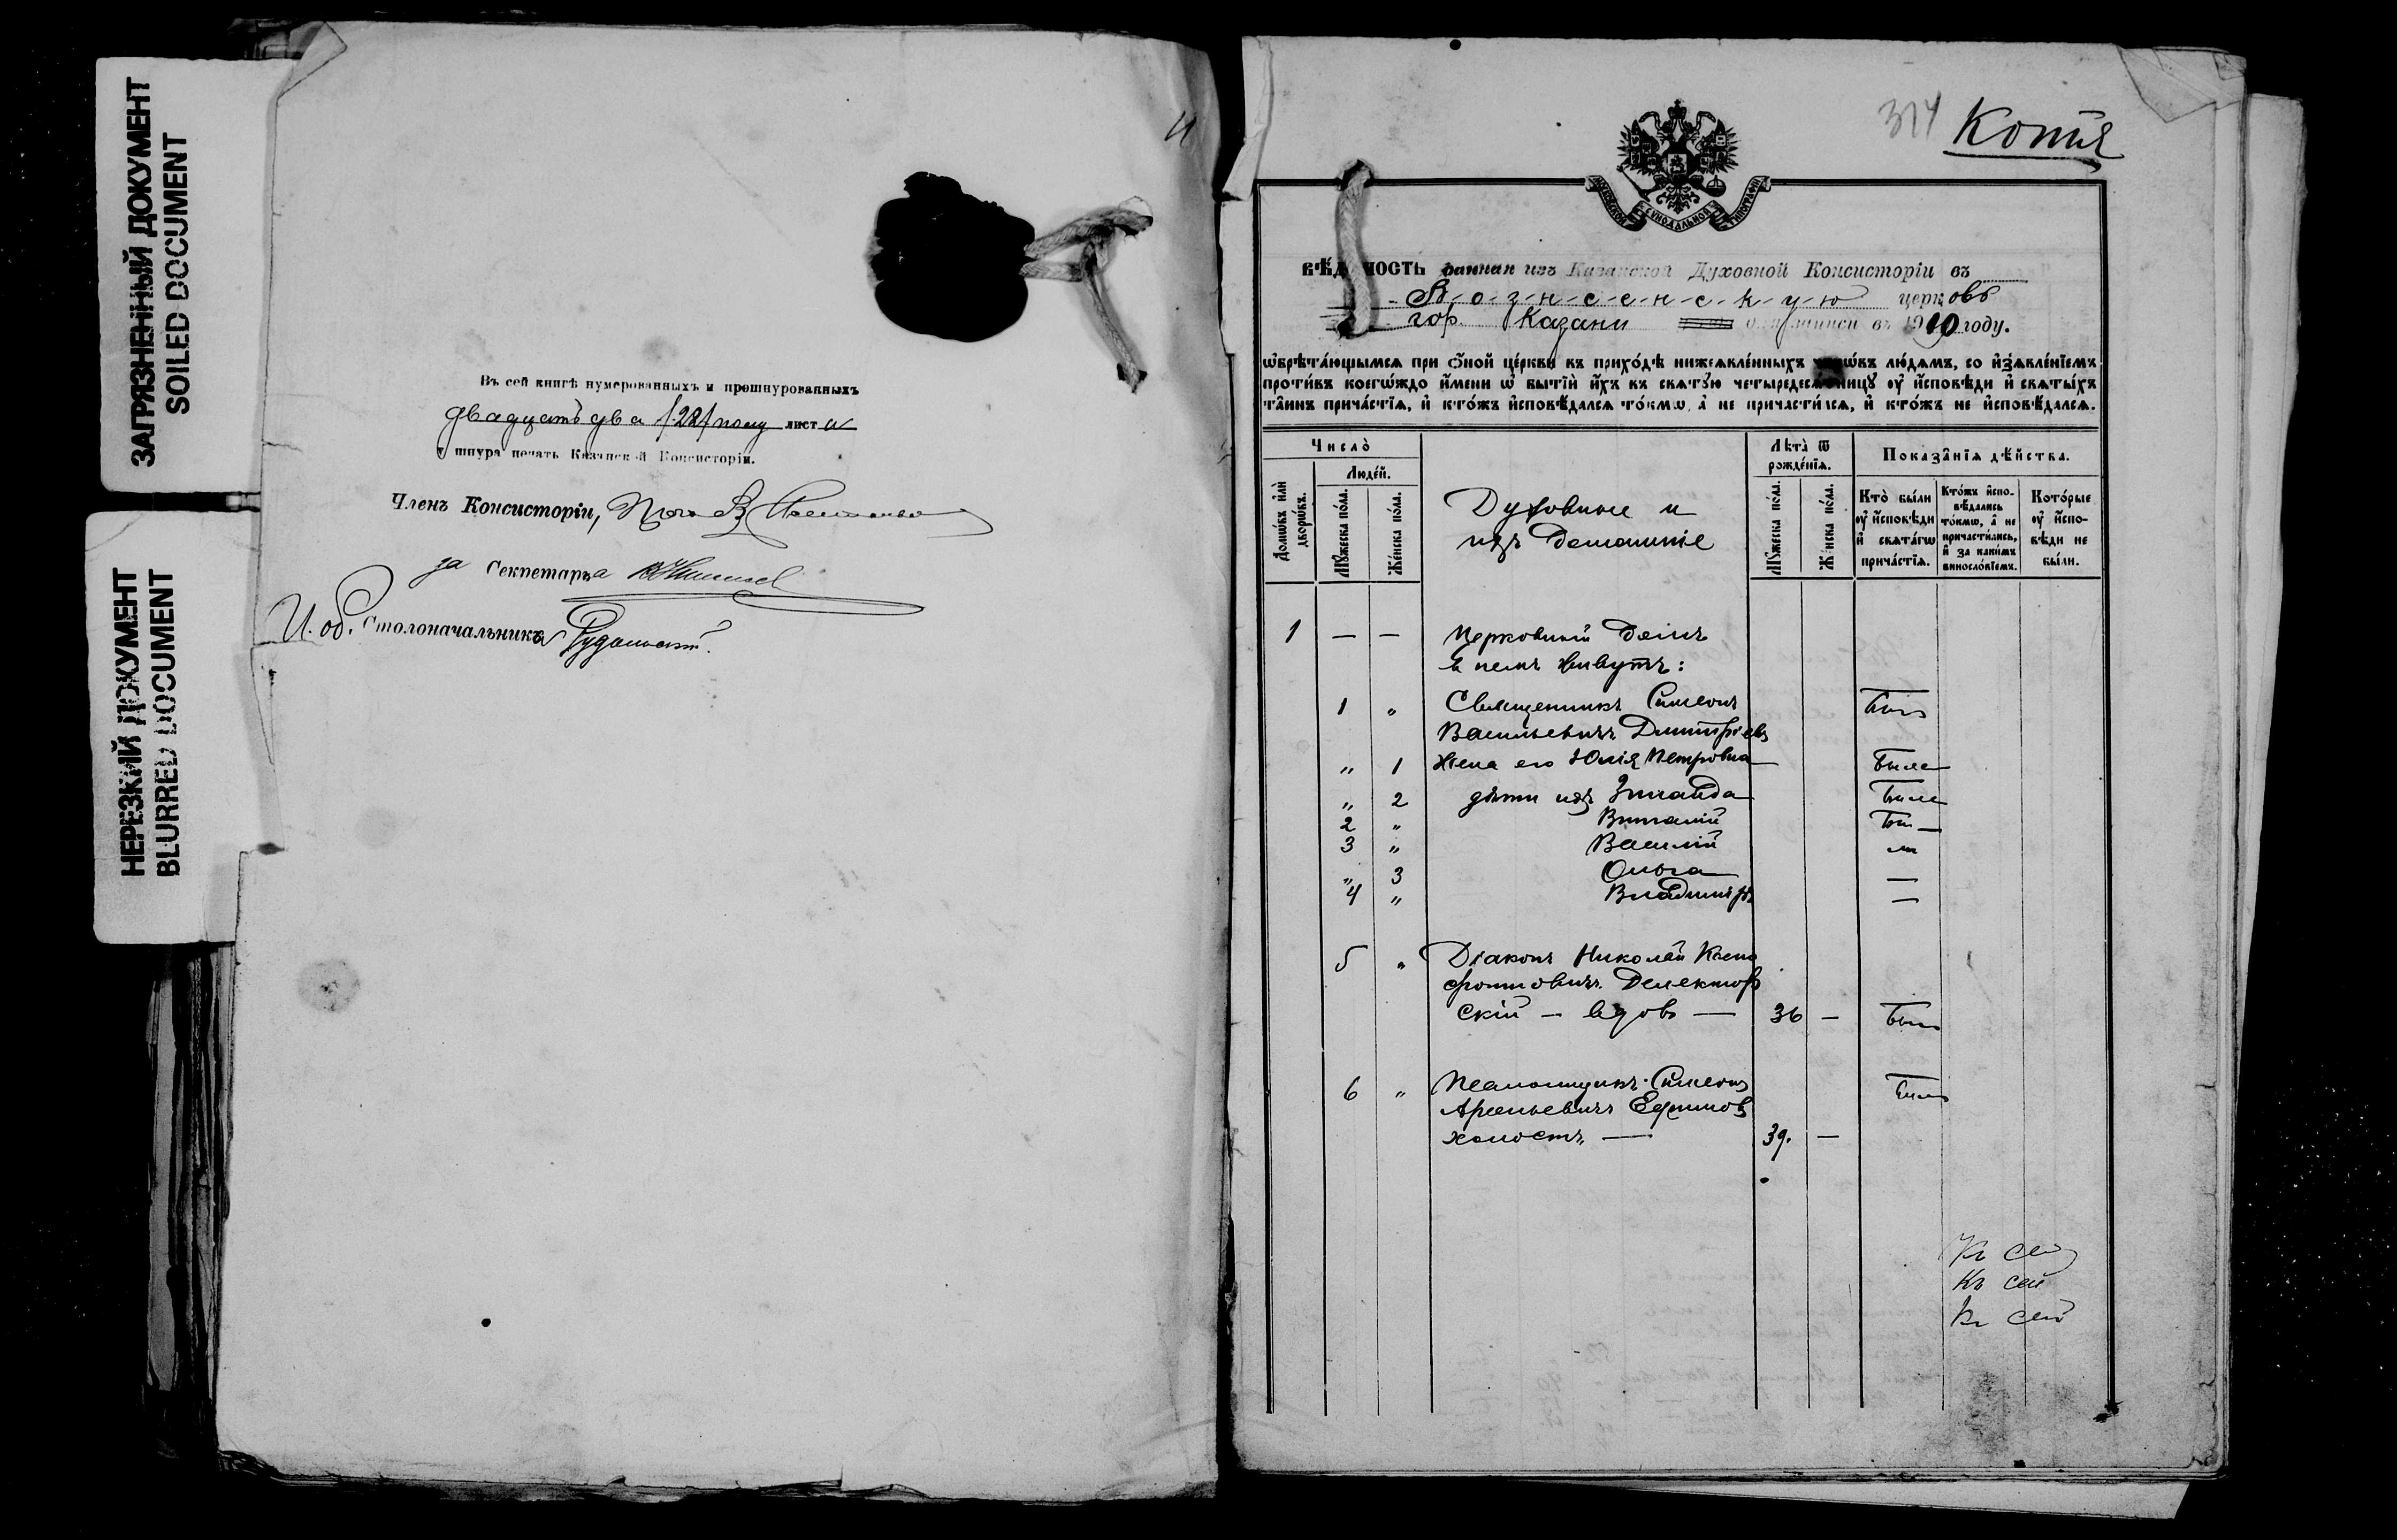 ЗАГРЯЗНЕННЫЙ ДОКУМЕНТ
SOILED DOCUMENT
НЕРЕЗКИЙ ДОКУМЕНТ
BLURRED DOCUMENT
Въ сей книгѣ нумерованныхъ и прошнурованныхъ
двадцать два /22/ лист
шнура печать Казанской Консисторіи.
Членъ Консисторіи,
за Секретаря
И. об. Столоначальника
374 Копія
МОСКОВСКОЙ СѴНОДАЛЬНОЙ ТИПОГРАФІИ
вѣдомость данная изъ Казанской Духовной Консисторіи въ
В-о-з-н-е-с-е-н-с-к-у-ю церковь
гор. Казани в 1910 году.
ѡбрѣта́ющымсѧ при ѻ́ной це́ркви въ прихо́дѣ нижеѧвле́нныхъ чинѡ́въ лю́демъ, со и҆з̾ѧвле́нїемъ
проти́въ коегѡ́ждо и҆́мени ѡ҆ бытїѝ и҆́хъ въ свѧту́ю четыредесѧ́тницꙋ ᲂу҆ и҆сповѣ́ди и҆ свѧты́хъ
та̑инъ прича́стїѧ, и҆ кто́жъ и҆сповѣ́далсѧ то́кмѡ, а҆ не причасти́лсѧ, и҆ кто́жъ не и҆сповѣ́далсѧ.
Число̀
Домѡ́въ и҆лѝ дворѡ́въ.
Люде́й.
Мꙋ́жеска по́ла.
Же́нска по́ла.
Духовные и
ихъ домашніе
Лѣта̀ ѿ рожде́нїѧ.
Мꙋ́жеска по́ла.
Же́нска по́ла.
Показа̑нїѧ дѣ́йства.
Кто̀ бы́ли ᲂу҆ и҆сповѣ́ди и҆ свѧта́гѡ прича́стїѧ.
Кто́жъ и҆спо-вѣ́дались то́кмѡ, а҆ не причасти́лись, и҆ за каки́мъ винослові́емъ.
Кото́рые ᲂу҆ и҆спо-вѣ́ди не бы́ли.
1 — — Церковный домъ
въ немъ живутъ:
1 " Священникъ Симеонъ Былъ
Васильевичъ Димитріевъ
" 1 Жена его Юлія Петровна Была
" 2 дѣти ихъ Зинаида Была
2 " Виталій
3 " Василій
" 3 Ольга —
4 " Владиміръ —
5 " Діаконъ Николай Ксено
фонтовичъ Делектор
скій — вдовъ — 36 — Былъ
6 " Псаломщикъ Симеонъ Былъ
Арсеньевичъ Ефимовъ
холостъ — 39. —
Къ сей
Къ сей
Къ сей